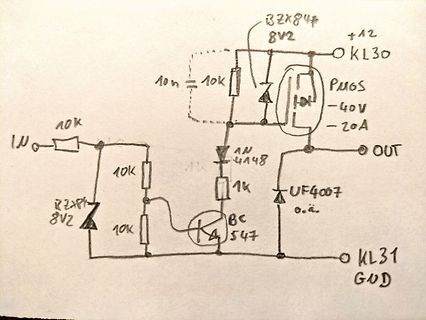 BZX84
8V2
+12
KL30
10n
10k
PMOS
-40V
-20A
10k
IN
1N
4148
OUT
10k
1k
UF4007
o.ä.
BZX84
8V2
BC
547
10k
KL31
GND